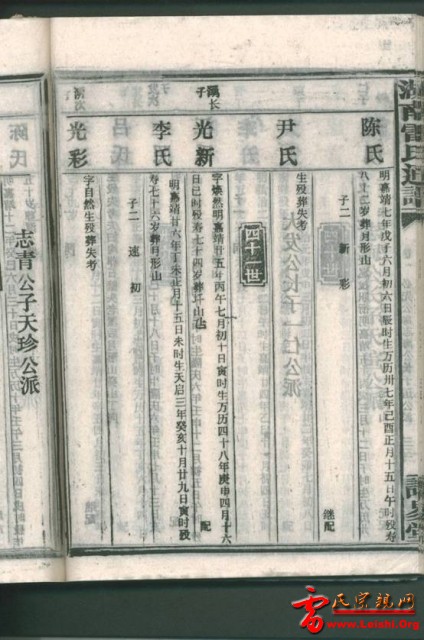 陈氏
明嘉靖七年戊子六月初六日辰时生万历卅七年己酉正月十五日午时殁寿
八十二岁葬月形山
子二 新 彩
继配
尹氏
生殁葬失考
四十一世
满长子
光新
字焕然明嘉靖廿五年丙午七月初十日寅时生万历四十八年庚申四月十六
日巳时殁寿七十四岁葬斗山
配
李氏
明嘉靖廿六年丁未正月十五日未时生天启三年癸亥十月廿九日寅时殁
寿七十六岁葬月形山
子二 速 初
满次
光彩
字自然生殁葬失考
志青公子天珍公派
陈氏
雷氏宗亲网
www.Laishi.Org